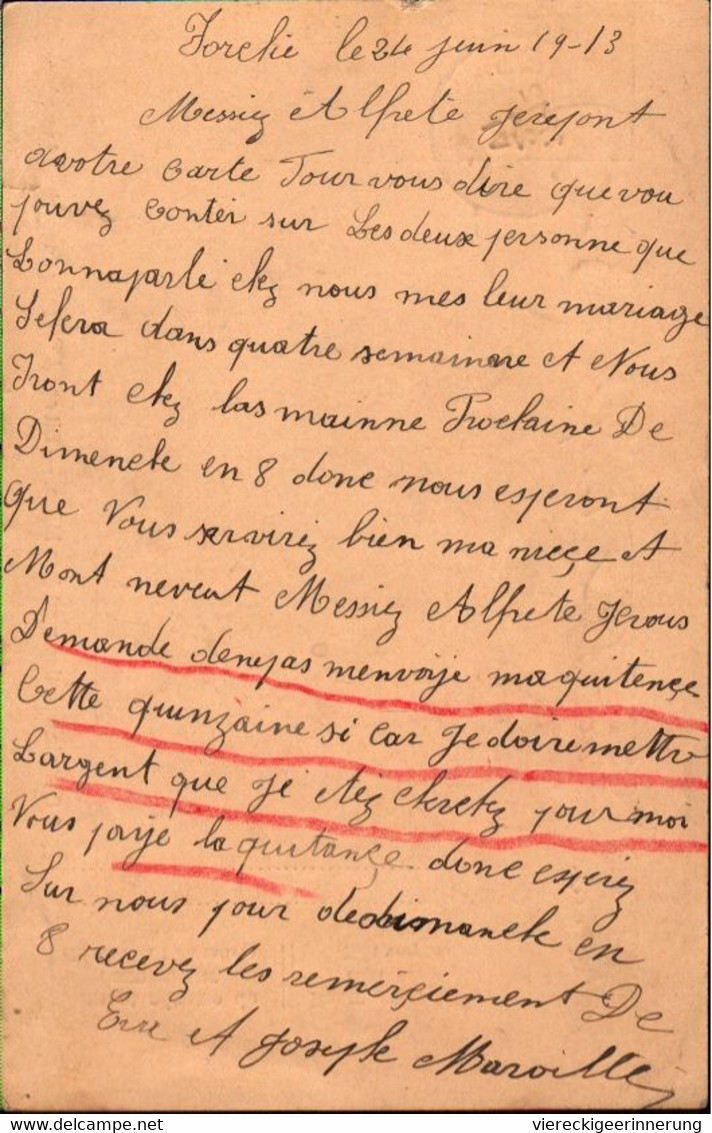 Forchie le 24 juin 19-13
Messiez Alfrete Jerepont
avotre Carte Pour vous dire que vou
pouvez Conter sur Les deux personne que
Lonnaparlé chez nous mes leur mariage
Sefera dans quatre semainne et Nous
Iront chez lasmainne Prochaine De
Dimenche en 8 donc nous esperont
Que Vous servirez bien ma nieçe et
Mont neveut Messiez Alfrete Jevous
Demande denepas menvoije maquitençe
Cette quinzaine si Car Jedoiremettre
Largent que Je chez cherchez pour moi
Vous paije laquitançe donc esperez
Sur nous pour dedimanche en
8 recevez les remerçiement De
et Joseph Maroille
viereckigeerinnerung